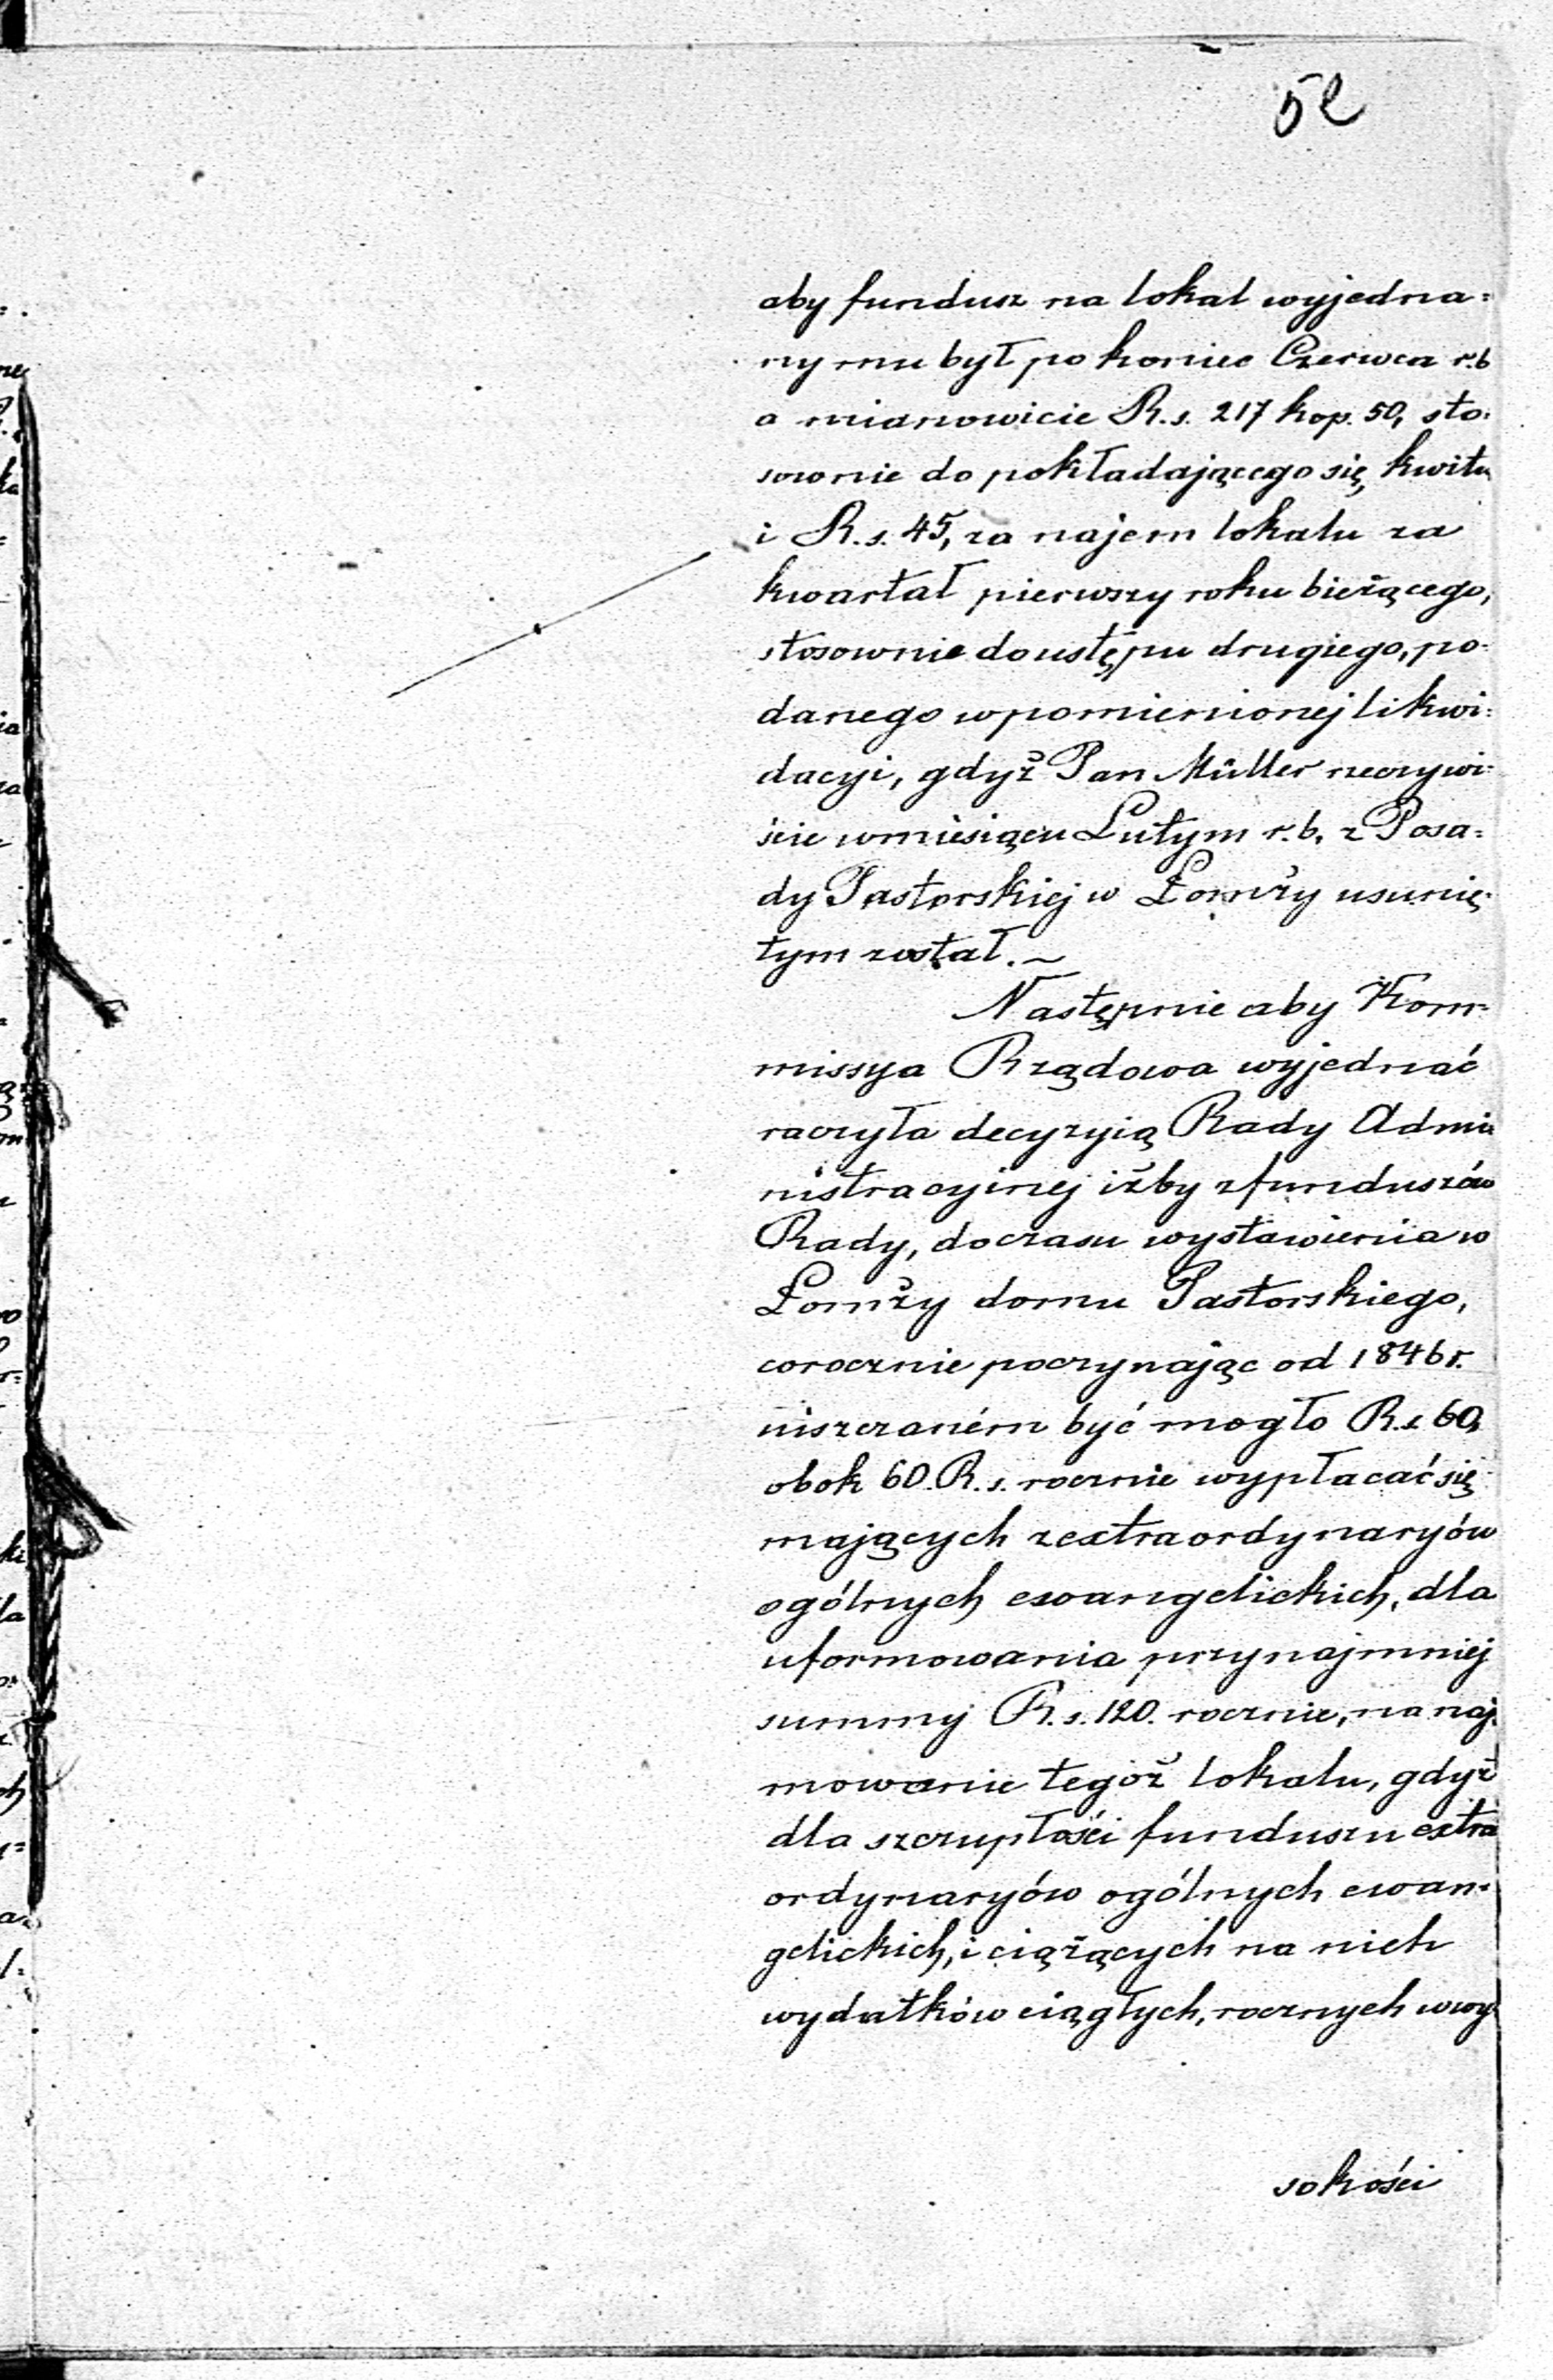 52
aby fundusz na lokal wyjedna=
ny mu był po koniec Czerwca r.b
a mianowicie R.s. 217 kop. 50, sto=
sownie do pokładającego się kwitu
i R.s. 45, za najem lokalu za
kwartał pierwszy roku bieżącego,
stosownie do ustępu drugiego, po=
danego w pomienionej likwi=
dacyi, gdyż Pan Müller rzeczywi=
ście w miesiącu Lutym r.b. z Posa=
dy Pastorskiej w Łomży usunię=
tym został.~
Następnie aby Kom=
missya Rządowa wyjednać
raczyła decyzyią Rady Admi
nistracyinej iżby z funduszów
Rady, do czasu wystawienia w
Łomży domu Pastorskiego,
corocznie poczynając od 1846 r.
uiszczaném być mogło R.s 60,
obok 60. R.s. rocznie wypłacać się
mających z extraordynaryów
ogólnych ewangelickich, dla
uformowania przynajmniej
summy R.s. 120. rocznie, na naj=
mowanie tegoż lokalu, gdyż
dla szczupłości funduszu extra
ordynaryów ogólnych ewan=
gelickich, i ciążących na nich
wydatków ciągłych, rocznych w wy
sokości